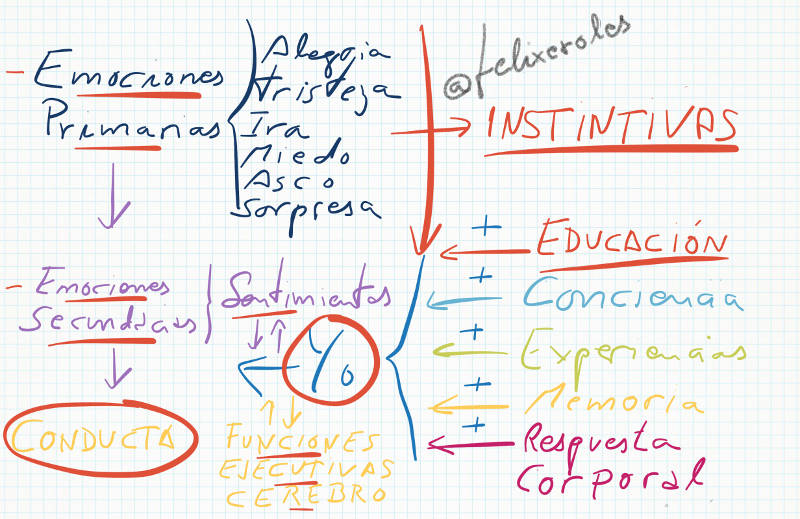 - Emociones
Primarias
Alegria
Tristeza
Ira
Miedo
Asco
Sorpresa
@felixeroles
INSTINTIVAS
+ EDUCACIÓN
+ Conciencia
+ Experiencias
+ Memoria
+ Respuesta
Corporal
- Emociones
Secundarias
Sentimientos
Yo
CONDUCTA
FUNCIONES
EJECUTIVAS
CEREBRO